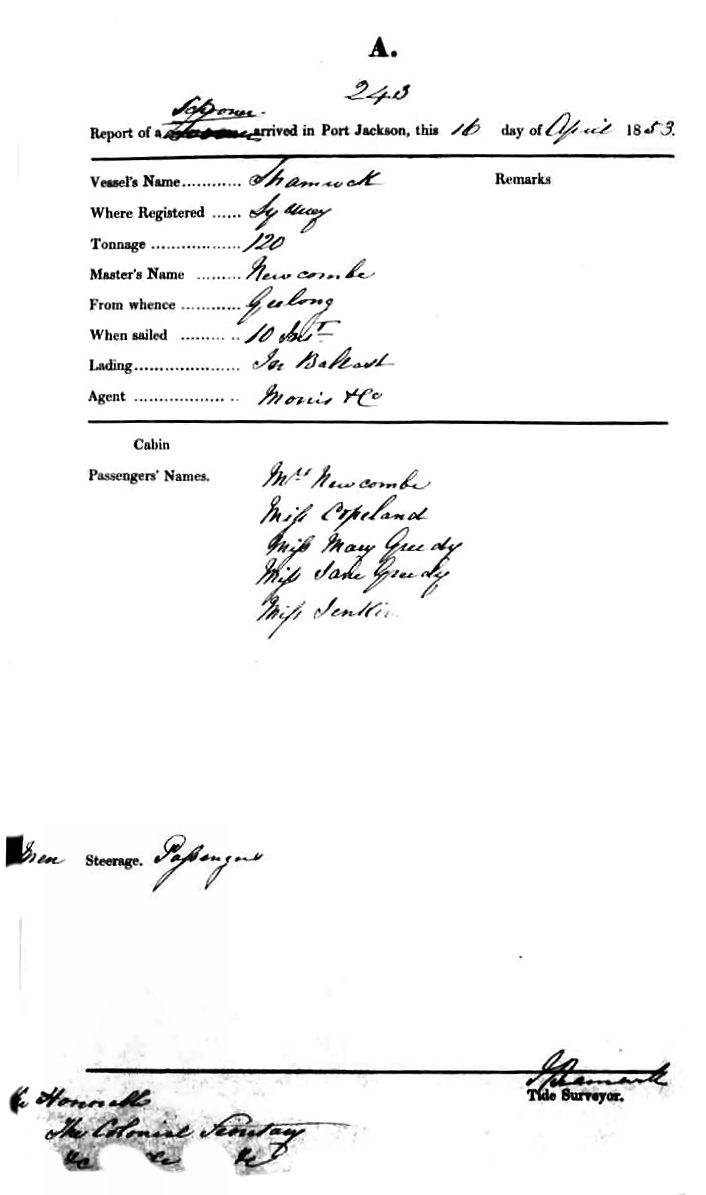 A.
243
Schooner
Report of a arrived in Port Jackson, this 16 day of April 1853.
Vessel's Name............ Shamrock Remarks
Where Registered ...... Sydney
Tonnage .................. 120
Master's Name ......... Newcombe
From whence ............ Geelong
When sailed ......... .. 10 Inst
Lading..................... In Ballast
Agent .................. .. Morris & Co
Cabin
Passengers' Names. Mrs Newcombe
Miss Copeland
Miss Mary Greedy
Miss Jane Greedy
Miss Jenkin
Steerage. Passengers
Tide Surveyor.
Honorable
The Colonial Secretary
&c &c &c